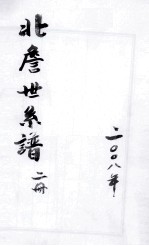 北詹世系譜
二册
二〇〇八年